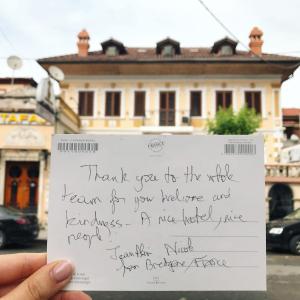 TAFA
FRANCE
Thank you to the whole
team for your welcome and
kindness - A nice hotel, nice
people!
Nicole
from Bretagne, France